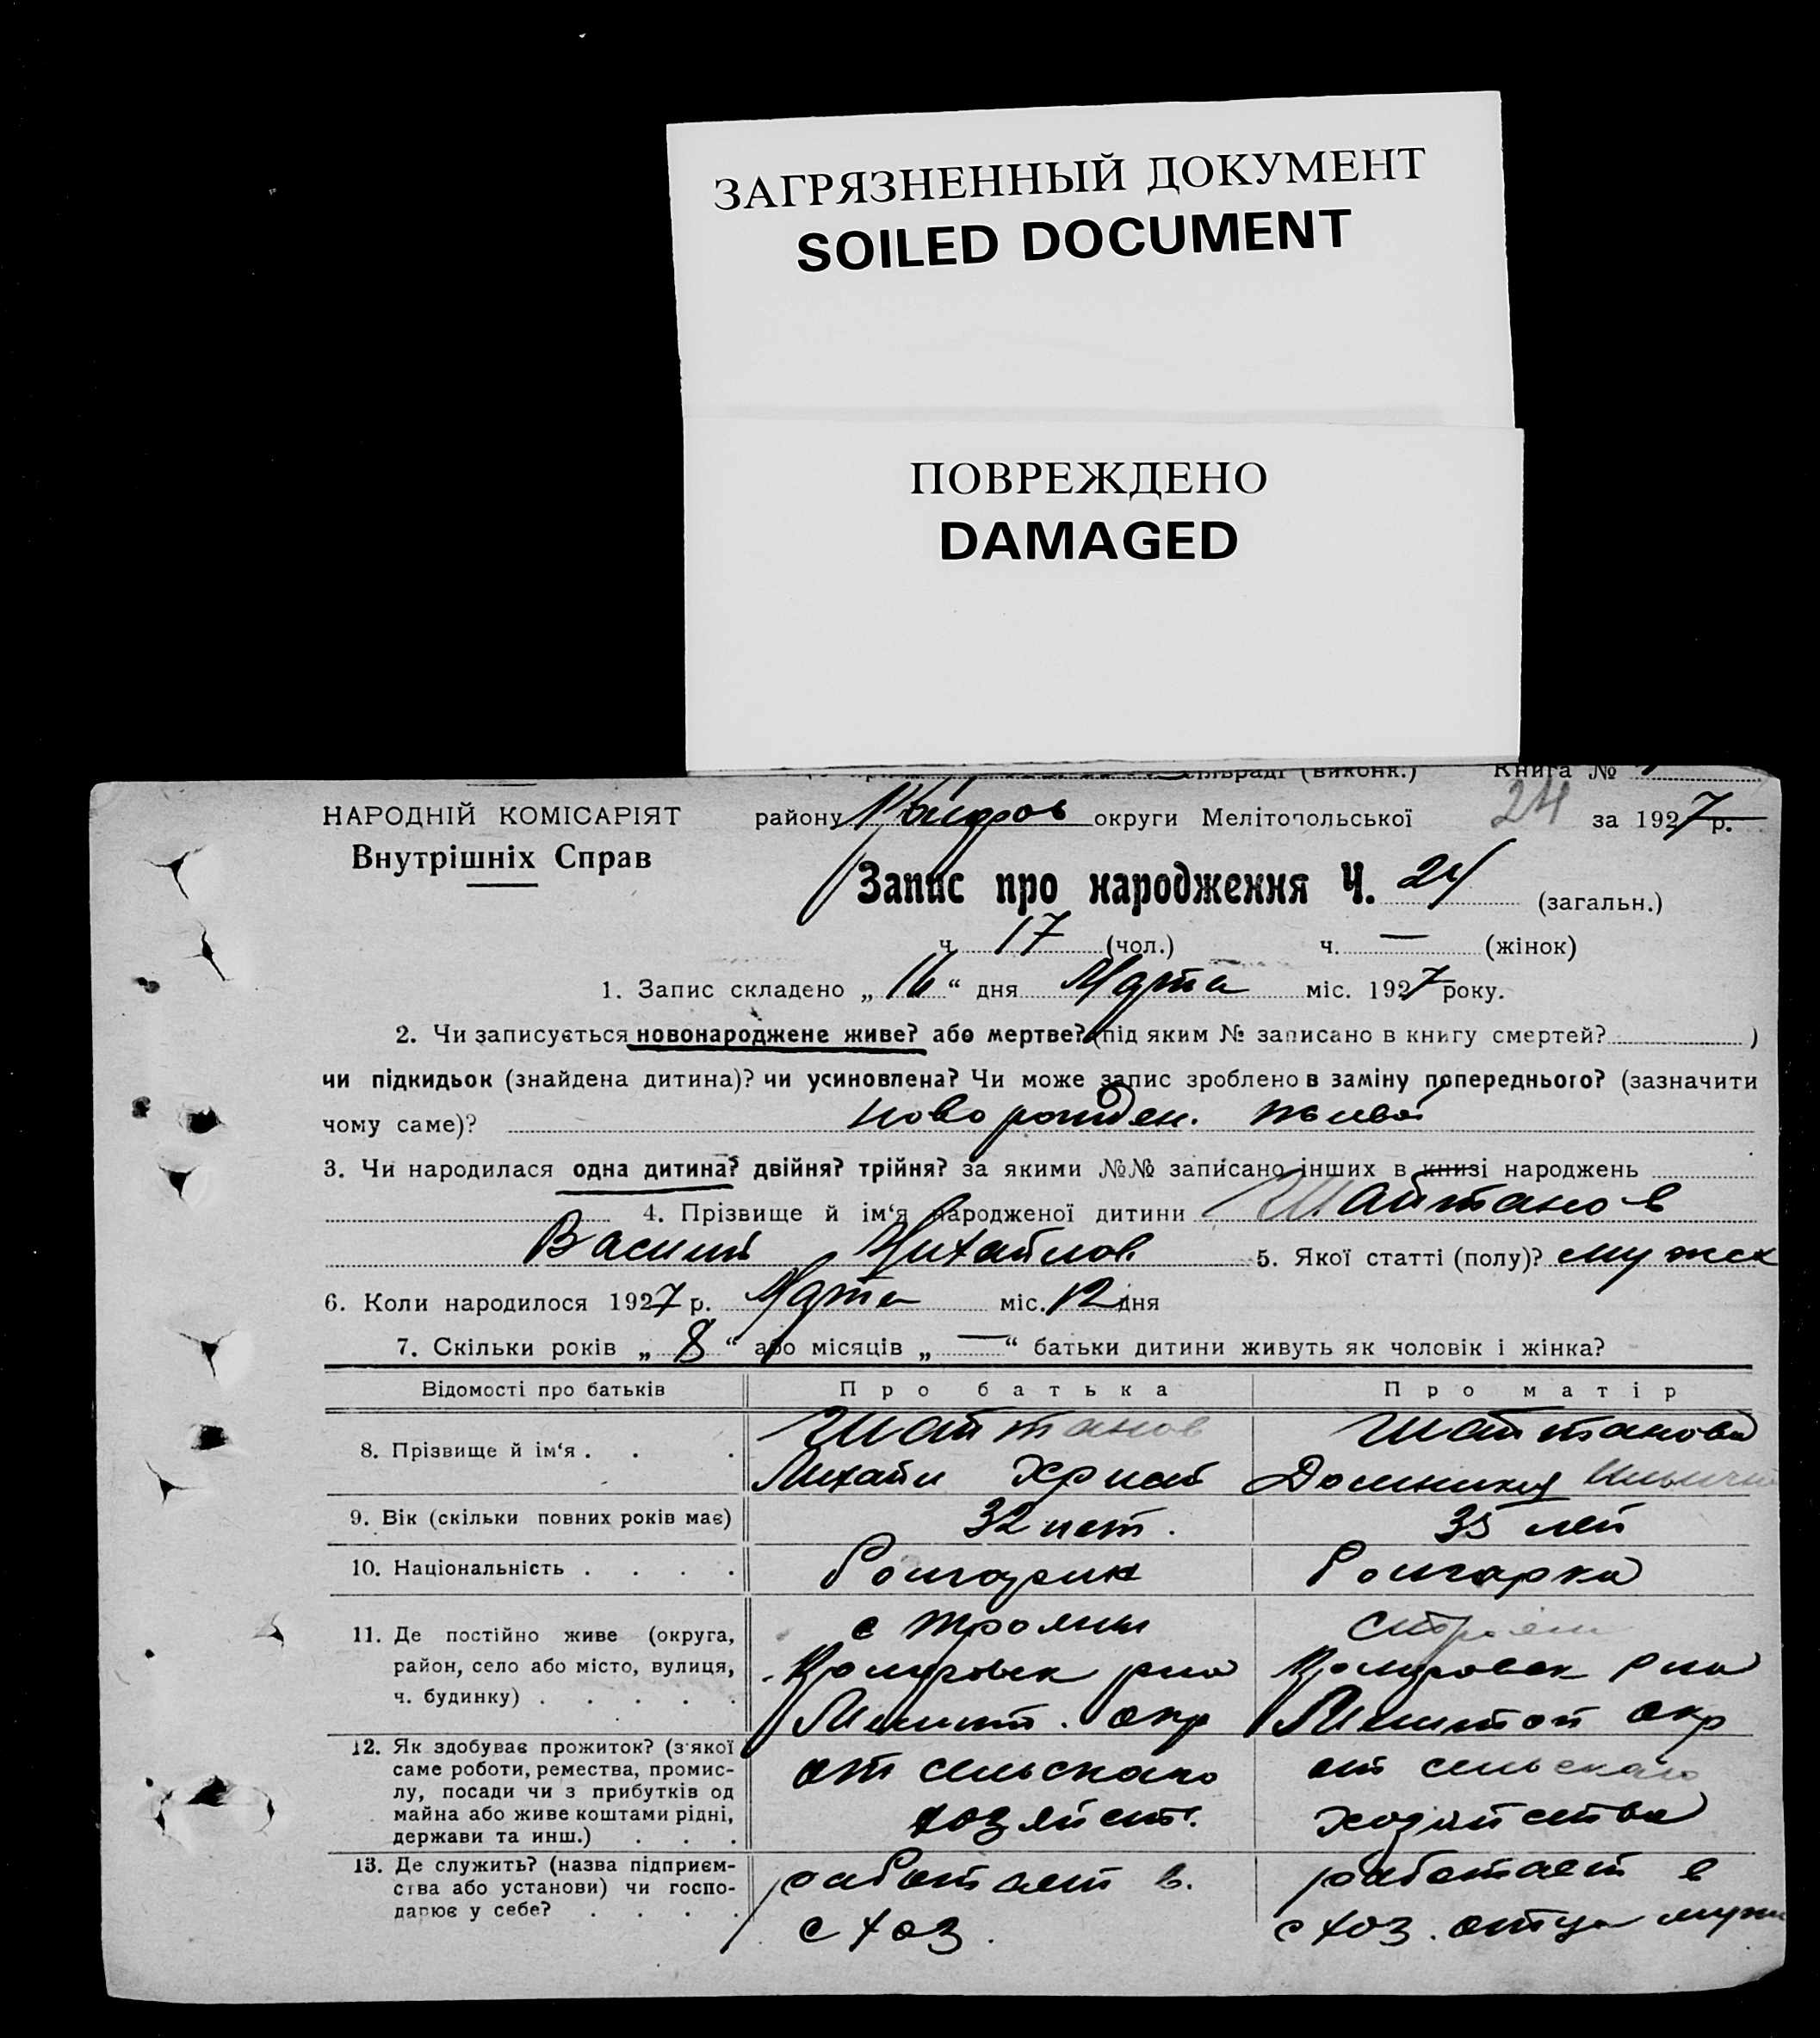 ЗАГРЯЗНЕННЫЙ ДОКУМЕНТ
SOILED DOCUMENT
ПОВРЕЖДЕНО
DAMAGED
(виконк.) Книга №
НАРОДНІЙ КОМІСАРІЯТ району округи Мелітопольської 24 за 1927 р.
Внутрішніх Справ
Запис про народження Ч. 24 (загальн.)
ч. 17 (чол.) ч. — (жінок)
1. Запис складено „16“ дня Марта міс. 1927 року.
2. Чи записується новонароджене живе? або мертве? (під яким № записано в книгу смертей? )
чи підкидьок (знайдена дитина)? чи усиновлена? Чи може запис зроблено в заміну попереднього? (зазначити
чому саме)? новорожден. живой
3. Чи народилася одна дитина? двійня? трійня? за якими №№ записано інших в книзі народжень
4. Прізвище й ім‘я народженої дитини Шайтанов
Василий Михайлов. 5. Якої статті (полу)? мужск
6. Коли народилося 1927 р. Марта міс. 12 дня
7. Скільки років „8“ або місяців „—“ батьки дитини живуть як чоловік і жінка?
Відомості про батьків Про батька Про матір
8. Прізвище й ім‘я . . . Шайтанов Шайтанова
Михаил Доминикия
9. Вік (скільки повних років має) 32 лет. 35 лет
10. Національність . . . . Болгарин Болгарка
11. Де постійно живе (округа, с Трояны
район, село або місто, вулиця, рна рна
ч. будинку) . . . . . Мелит. окр Мелитоп окр
12. Як здобуває прожиток? (з якої
саме роботи, ремества, промис- от сельскаго от сельскаго
лу, посади чи з прибутків од
майна або живе коштами рідні, хозяйств. хозяйства
держави та инш.) . . .
13. Де служить? (назва підприєм- работает в. работает в
ства або установи) чи госпо-
дарює у себе? . . . . с хоз. с хоз. отца мужа